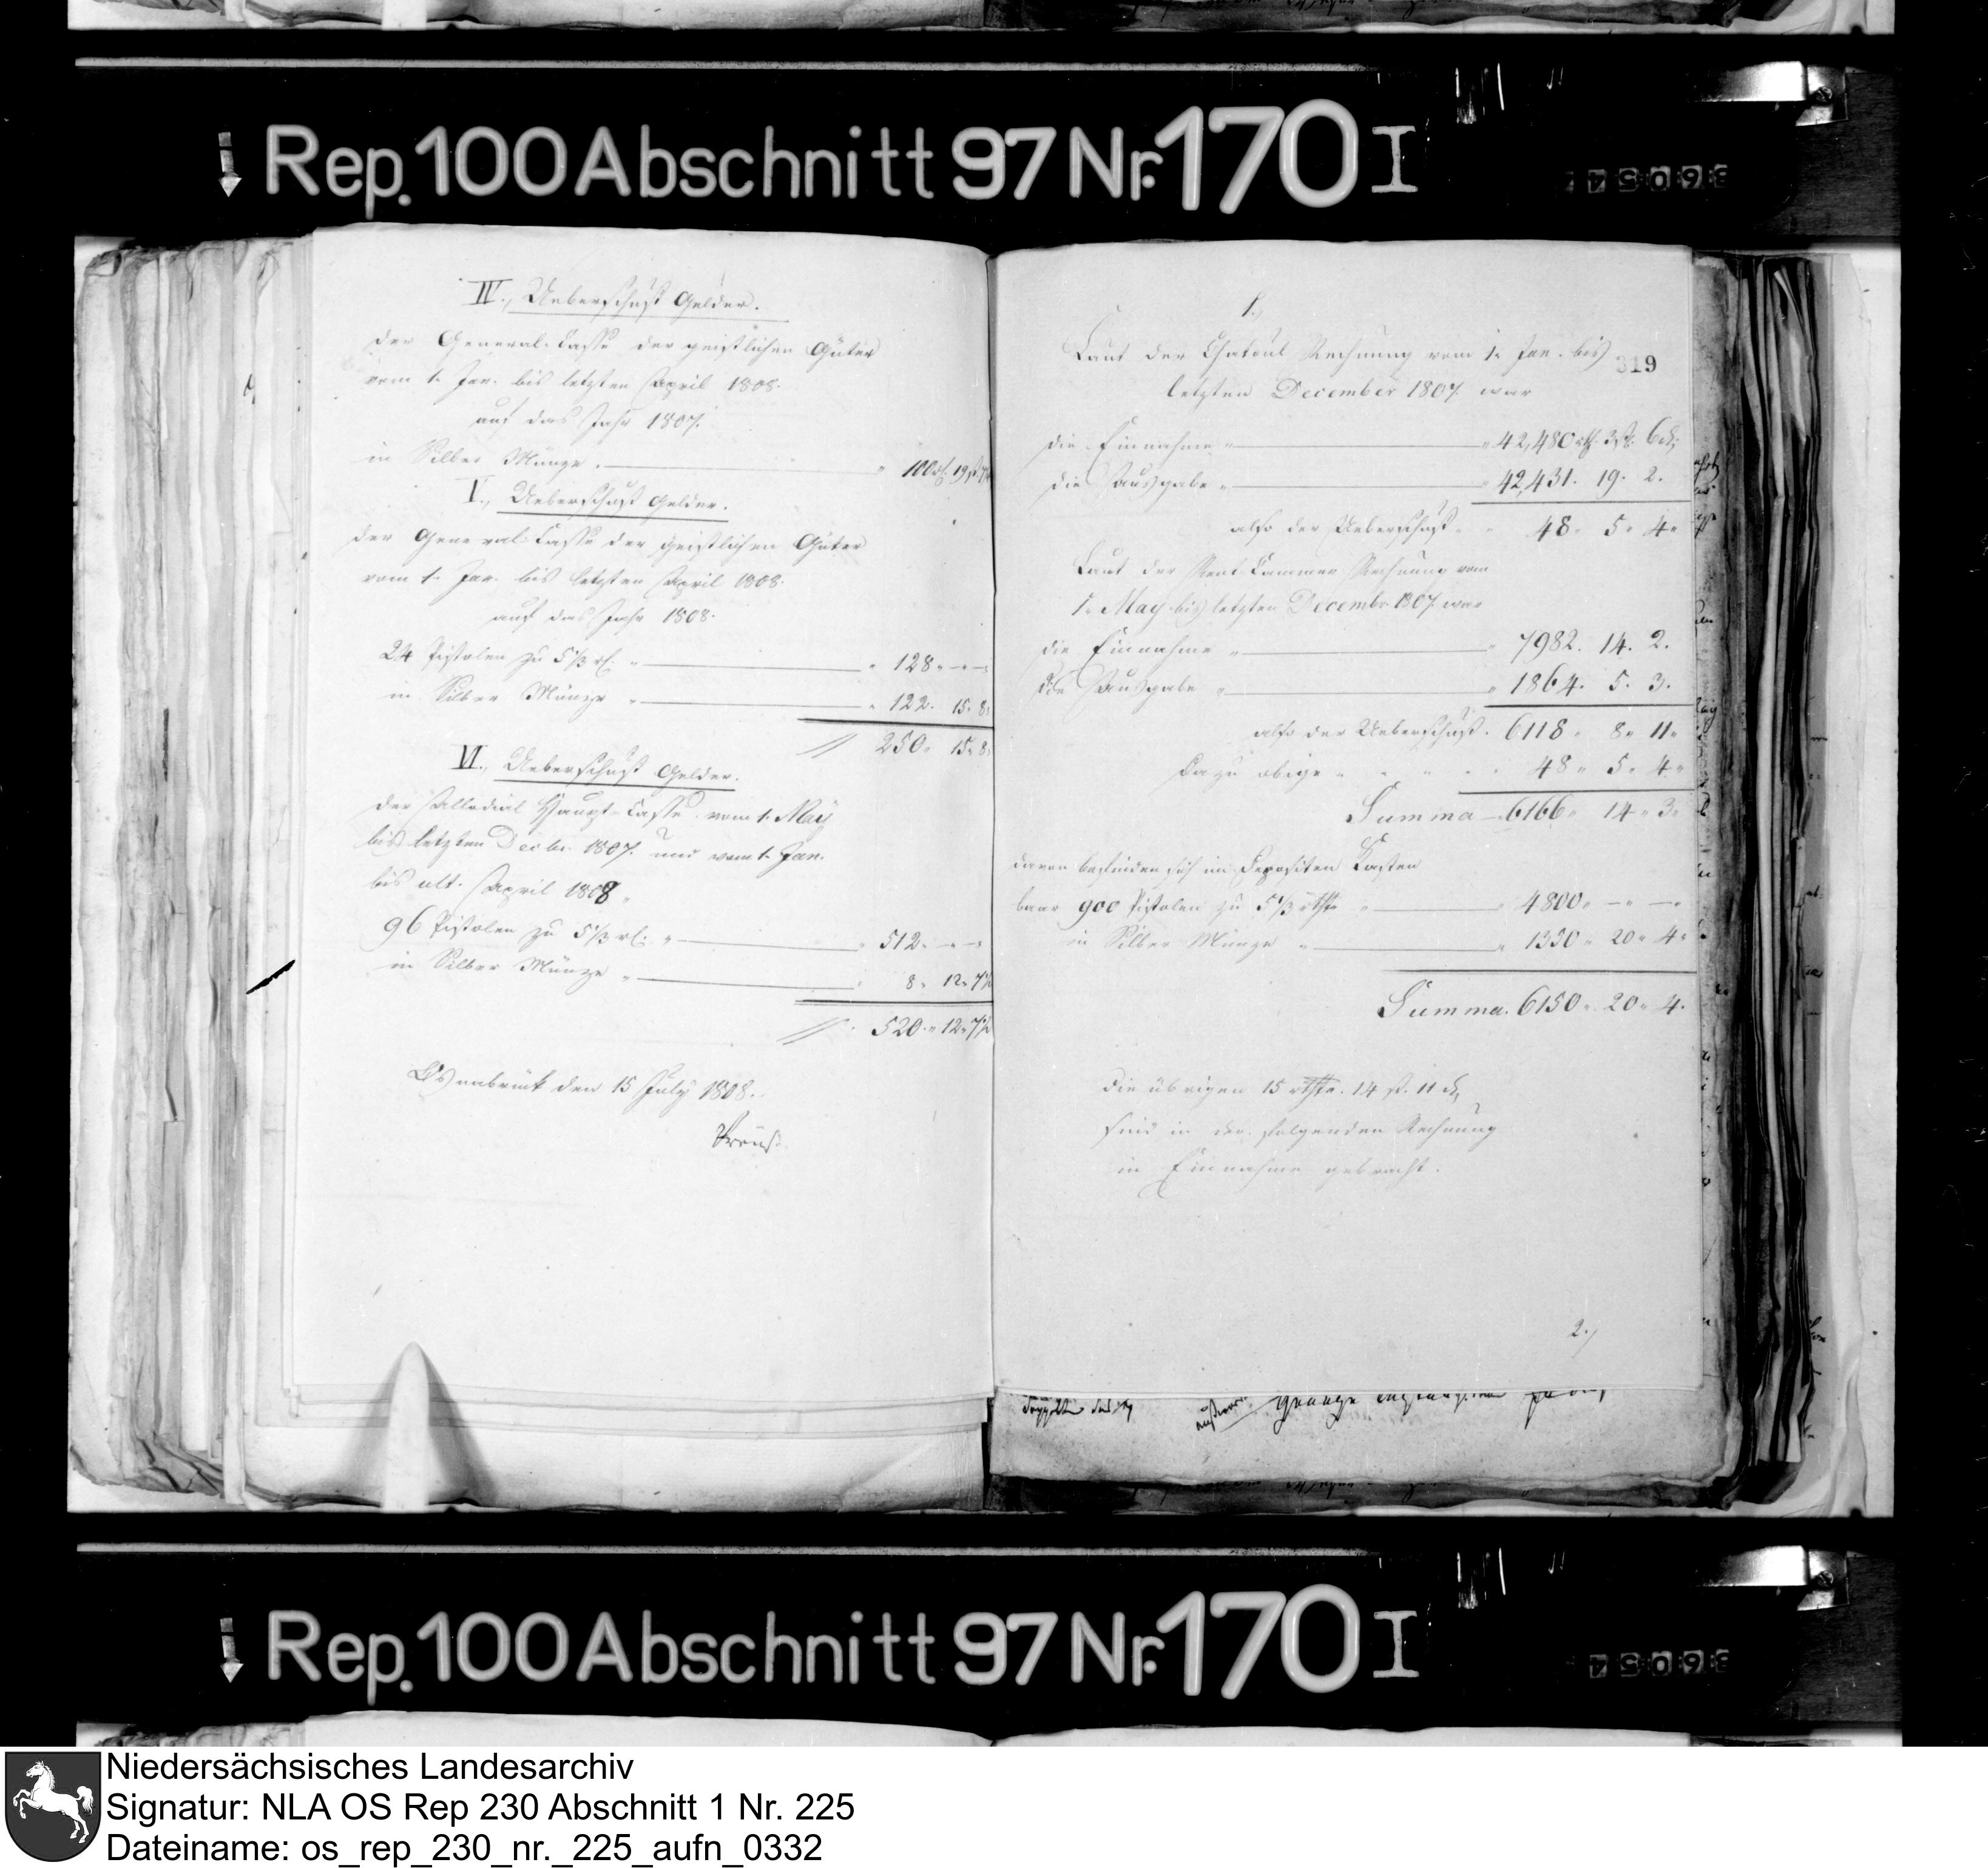 Rep. 100 Abschnitt 97 Nr. 170 I
IV., Ueberschuß Gelder.
der General-Casse der geistlichen Güter
vom 1. Jan. bis letzten April 1808.
auf das Jahr 1807.
in Silber Münze. 100 rl. 19
V., Ueberschuß Gelder.
der General-Casse der geistlichen Güter
vom 1. Jan. bis letzten April 1808.
auf das Jahr 1808.
24 Pistolen zu 5 1/3 rl. 128. — —
in Silber Münze 122. 15. 8.
250. 15. 8.
VI., Ueberschuß Gelder.
der Allodial Haupt-Casse vom 1. May
bis letzten Decbr. 1807. und vom 1. Jan.
bis ult. April 1808.
96 Pistolen zu 5 1/3 rl. 512. — —
in Silber Münze 8. 12. 7½
520. 12. 7½
Osnabrück den 15 July 1808.
Preuß.
1.,
319
Laut der Chatoul Rechnung vom 1. Jan. bis
letzten December 1807. war
die Einnahme 42,480 rthl. 3 ß. 6 d.
die Ausgabe 42,431. 19. 2.
also der Ueberschuß 48. 5. 4.
Laut der Rent Cammer Rechnung vom
1. May bis letzten Decembr. 1807. war
die Einnahme 7982. 14. 2.
die Ausgabe 1864. 5. 3.
also der Ueberschuß. 6118. 8. 11.
Dazu obige 48. 5. 4.
Summa 6166. 14. 3.
davon befinden sich im Depositen Kasten
baar 900 Pistolen zu 5 1/3 rthlr 4800. — —
in Silber Münze 1350. 20. 4.
Summa. 6150. 20. 4.
die übrigen 15 rthlr. 14 ß. 11 d.
sind in der folgenden Rechnung
in Einnahme gebracht.
2.,
Rep. 100 Abschnitt 97 Nr. 170 I
Niedersächsisches Landesarchiv
Signatur: NLA OS Rep 230 Abschnitt 1 Nr. 225
Dateiname: os_rep_230_nr._225_aufn_0332